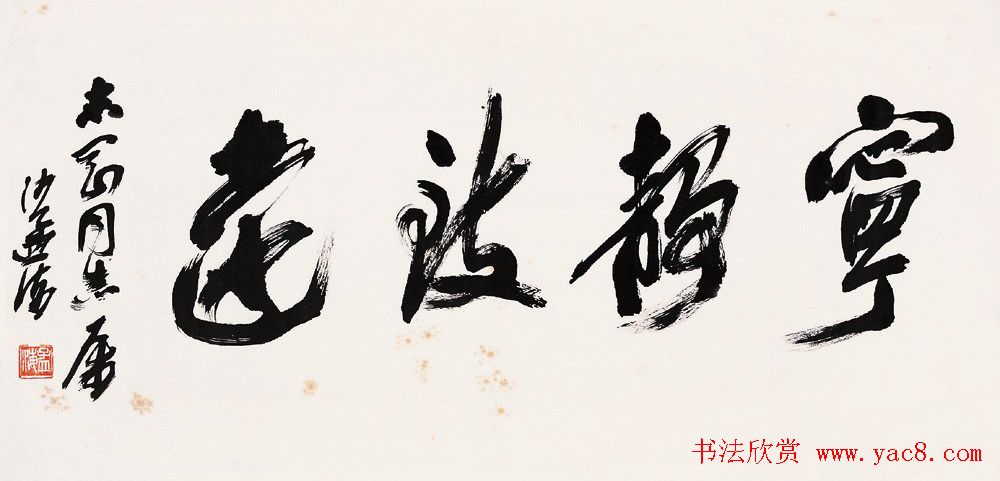 寧靜致遠
同志屬
沙孟海
孟海
书法欣赏 www.yac8.com